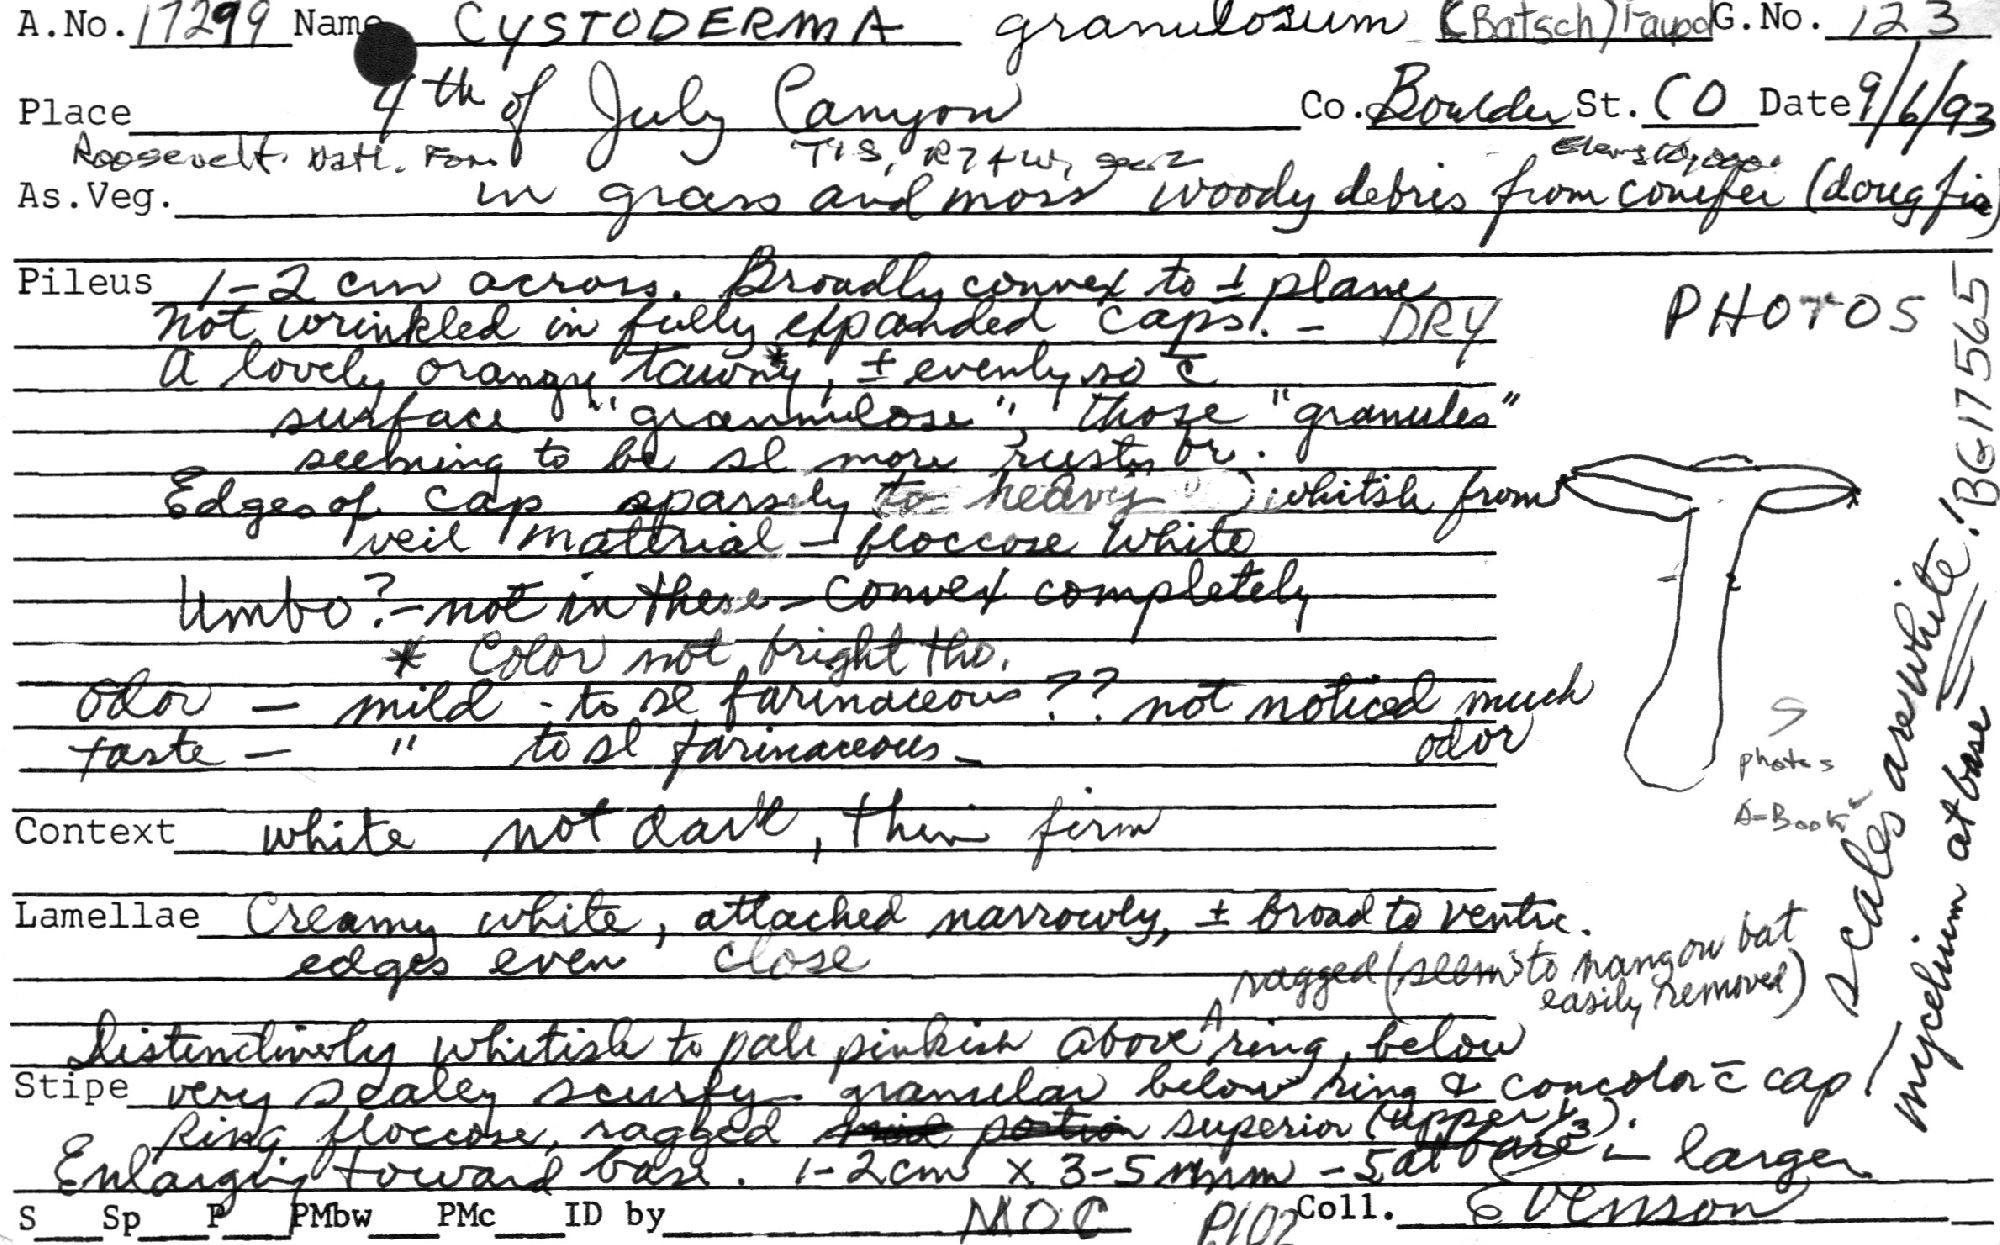 A.No. 17299 Name CYSTODERMA granulosum (Batsch) Fayod G.No. 123
Place 4th of July Canyon Co. Boulder St. CO Date 9/6/93
Roosevelt Natl. For. T1S, R74W, sec 2
As.Veg. in grass and moss woody debris from conifer (doug fir)
Pileus 1-2 cm across. Broadly convex to ± plane
not wrinkled in fully expanded caps. - DRY
A lovely orangy tawny*, ± evenly so c̄
surface "granulose", those "granules"
seeming to be sl more rusty br.
Edges of cap sparsely to heavy whitish from
veil material - floccose white
Umbo? - not in these - convex completely
* Color not bright tho.
odor - mild - to sl farinaceous ?? not noticed much
odor
taste - " to sl farinaceous -
PHOTOS
BG17565
photos
A-Book
Context white not dark, thin firm
Lamellae Creamy white, attached narrowly, ± broad to ventric.
edges even close
ragged (seems to hang on but
easily removed)
Distinctively whitish to pale pinkish above ^ ring, below
Stipe very scaley scurfy - granular below ring & concolor c̄ cap!
Ring floccose, ragged mid portion superior (upper 1/3).
Enlarging toward base. 1-2cm x 3-5 mm - 5 at base in larger
scales are white!
mycelium at base
S Sp P PMbw PMc ID by MOC P.102 Coll. Evenson